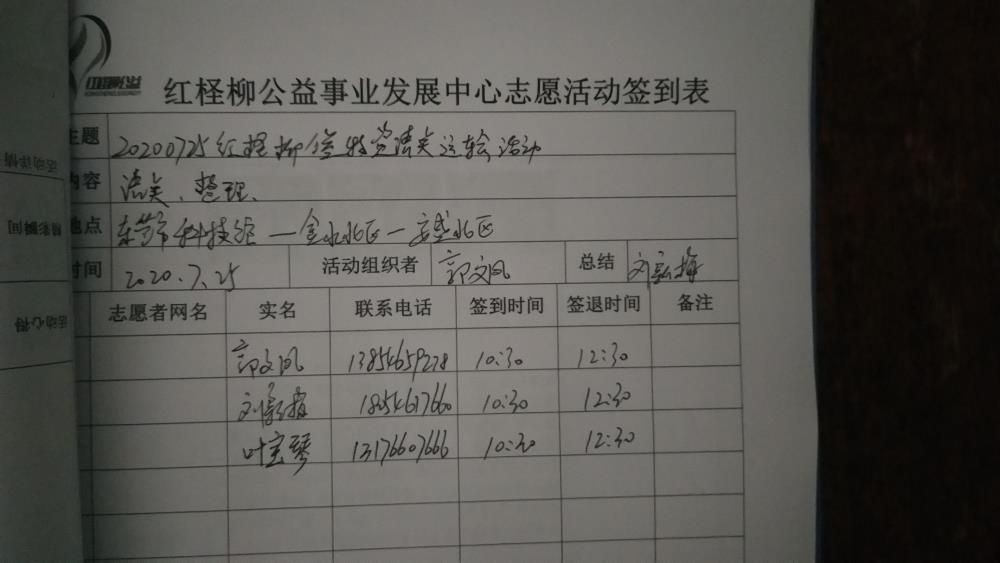 红柽柳公益事业发展中心志愿活动签到表
主题 20200725红柽柳 清关运输活动
内容 清关、整理、
地点 东营市科技 —金水北区—安盛北区
时间 2020.7.25 活动组织者 郭文凤 总结
志愿者网名 实名 联系电话 签到时间 签退时间 备注
郭文凤 13854659278 10:30 12:30
18254617660 10:30 12:30
叶宝琴 13176607666 10:30 12:30
活动详情
精彩瞬间
活动心得